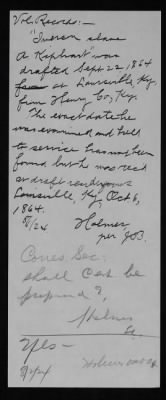 Vol. Records:—
"Iverson slave
A Kephart" was
drafted Sept. 22, 1864
at Louisville, Ky.
from Henry Co. Ky.
The exact date he
was examined and held
to service has not been
found but he was rec'd
at draft rendezvous
Louisville, Ky, Oct. 6,
1864.
8/24 Holmes
per JOB.
Cones. Sec:
Shall C at be
prepared?
Holmes
Yes—
8/2/24 Holmes